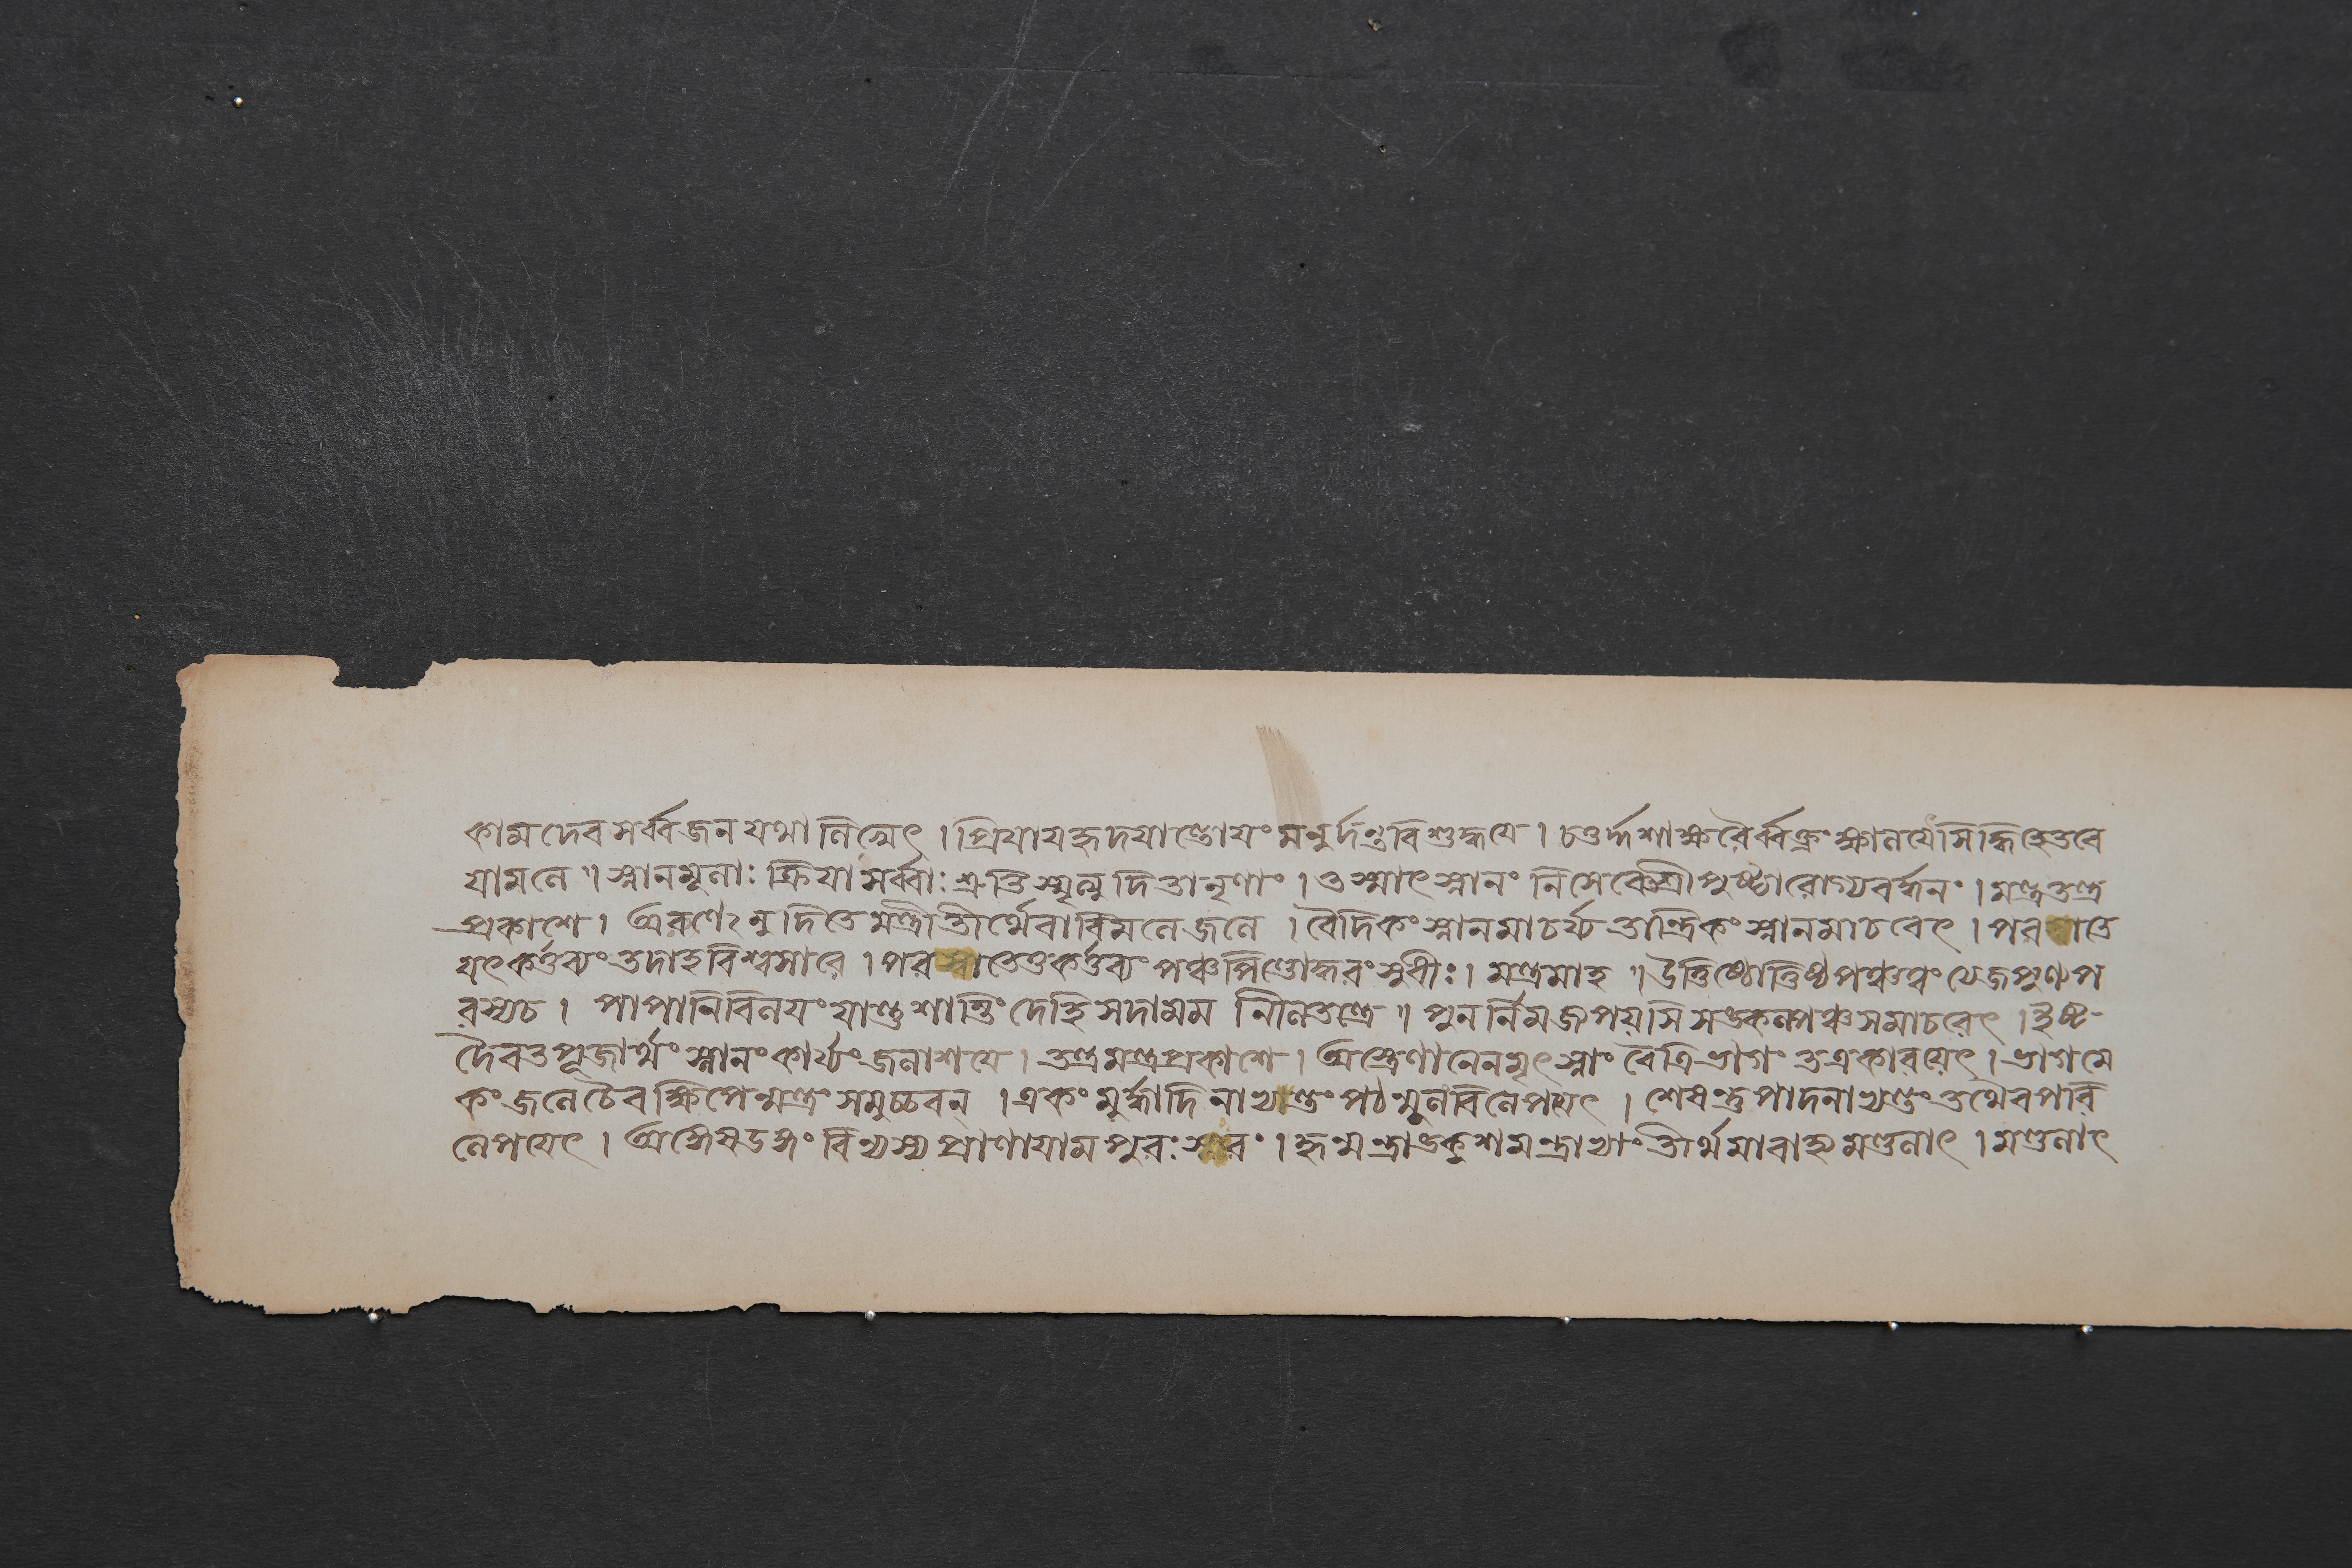 কামদেব সর্ব্বজন যথা নিক্ষেৎ । প্রিযাযহৃদযাণ্ডোযং মনুর্দন্তবিশুদ্ধযে । চতুর্দ্দশাক্ষরৈর্ব্বক্ত্রং ক্ষালযেৎসিদ্ধিহেতবে
যামলে ॥ স্নানমূলাঃ ক্রিযা সর্ব্বাঃ শ্রুতিস্মৃত্যুদিতানৃণাং । তস্মাৎ স্নানং নিসেবেত শ্রীপুষ্ট্যারোগ্যবর্দ্ধনং । মন্ত্রতন্ত্র
প্রকাশে । অরুণেঽনুদিতে মন্ত্রী তীর্থেবাবিমলেজলে । বৈদিকং স্নানমাচর্য্য তান্ত্রিকং স্নানমাচরেৎ । পরখাতে
যৎকর্ত্তব্যং তদাহ বিশ্বসারে । পরখাতেতুকর্ত্তব্যং পঞ্চপিণ্ডোদ্ধরং সুধীঃ । মন্ত্রমাহ ॥ উত্তিষ্ঠোত্তিষ্ঠপঙ্কত্বং ত্যজপুণ্যপ
রস্যচ । পাপানিবিলযং যান্তু শান্তিং দেহি সদামম নীলতন্ত্রে ॥ পুনর্নিমজ্জ্যপয়সি সঙ্কল্পঞ্চসমাচরেৎ । ইষ্ট
দৈবতপূজার্থং স্নানং কার্য্যং জলাশযে । তন্ত্রমন্ত্রপ্রকাশে । অস্ত্রেণানেনমৃৎস্নাং বৈত্রিভাগং তত্রকারয়েৎ । ভাগমে
কং জলে চৈব ক্ষিপেন্মন্ত্রং সমুচ্চরন্ । একং মূর্দ্ধাদিনাভ্যন্তং পঠন্মূলং বিলেপয়েৎ । শেষন্তুপাদনাভ্যন্তং তথৈব পরি
লেপযেৎ । অঙ্গেষডঙ্গং বিন্যস্য প্রাণাযামপুরঃসরং । হৃন্মন্ত্রাঙ্কুশমন্ত্রাভ্যাং তীর্থমাবাহ্য মণ্ডলাৎ । মণ্ডলাৎ